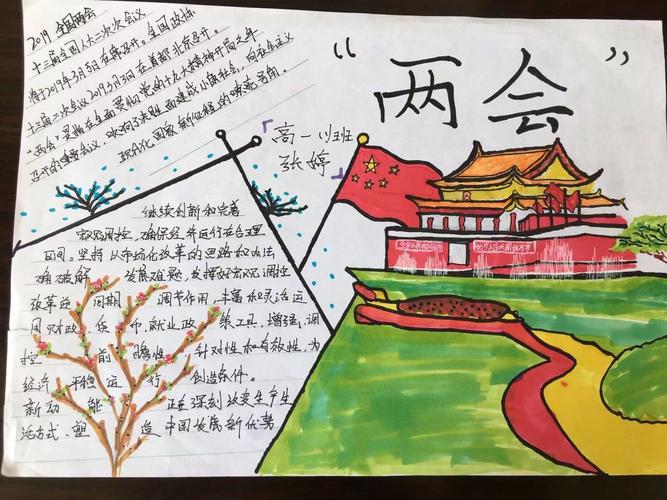 2019 全国两会
十三届全国人大二次会议
将于2019年3月5日在京召开。全国政协
十三届二次会议2019年3月3日在首都北京召开。
"两会"是指在全面贯彻党的十九大精神开局之年
召开的重要会议,吹响了决胜全面建成小康社会,向社会主义
现代化国家新征程的嘹亮号角。
"两会"
高一、1班
张婷
继续创新和完善
宏观调控,确保经济运行在合理
区间,坚持以市场化改革的思路和办法
确破解 发展难题,发挥好宏观调控
改革 同期 调节作用,丰富和灵活运
用财政、货币、就业政策工具,增强调
控 前瞻性 针对性和有效性,为
经济平稳运行创造条件。
新动能 正在深刻改变生产生
活方式、塑造中国发展新优势